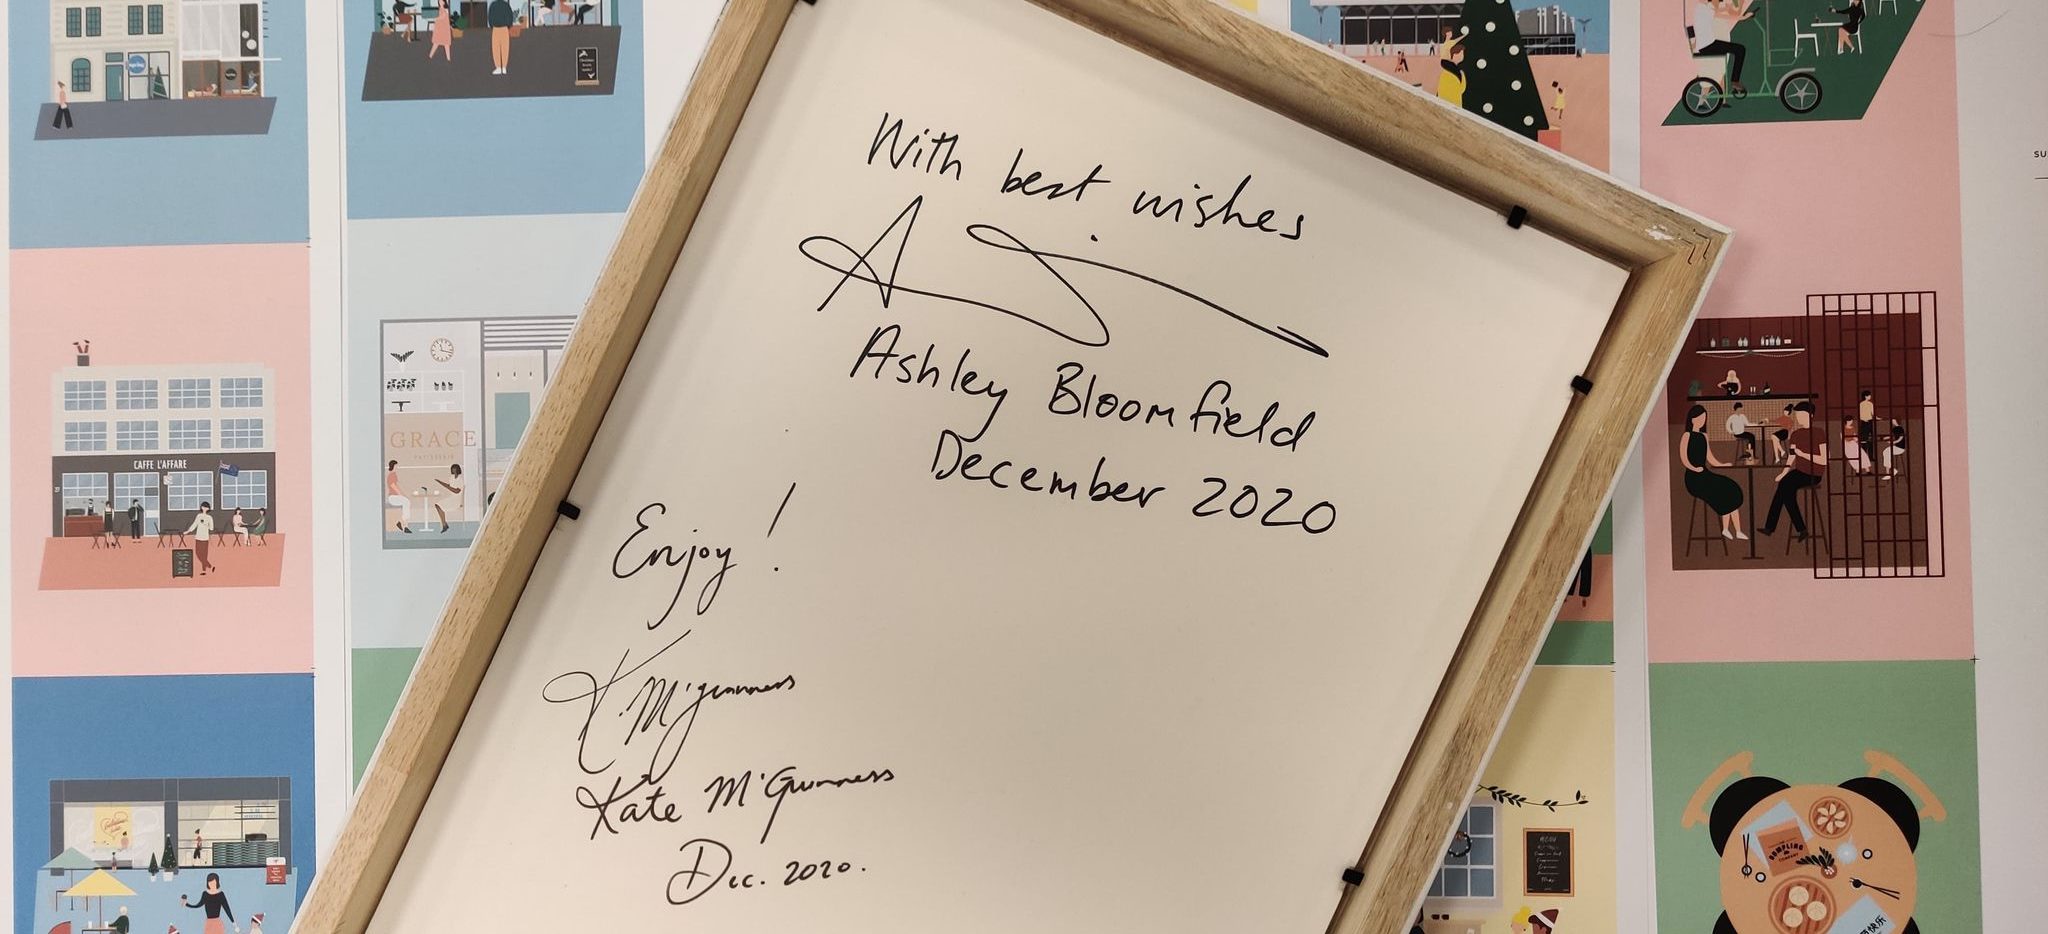 With best wishes
Ashley Bloomfield
December 2020
Enjoy!
K. M'Guinness
Kate M'Guinness
Dec. 2020.
CAFFE L'AFFARE
GRACE
PATISSERIE
DUMPLING
COMPANY
SU